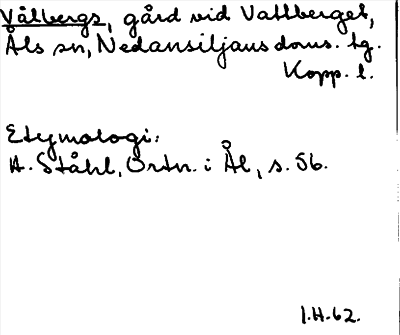 Vålbergs, gård vid Vattberget,
Åls sn, Nedansiljans doms. tg.
Kopp. l.
Etymologi:
H. Ståhl, Ortn. i Ål, s. 56.
1.H.62.